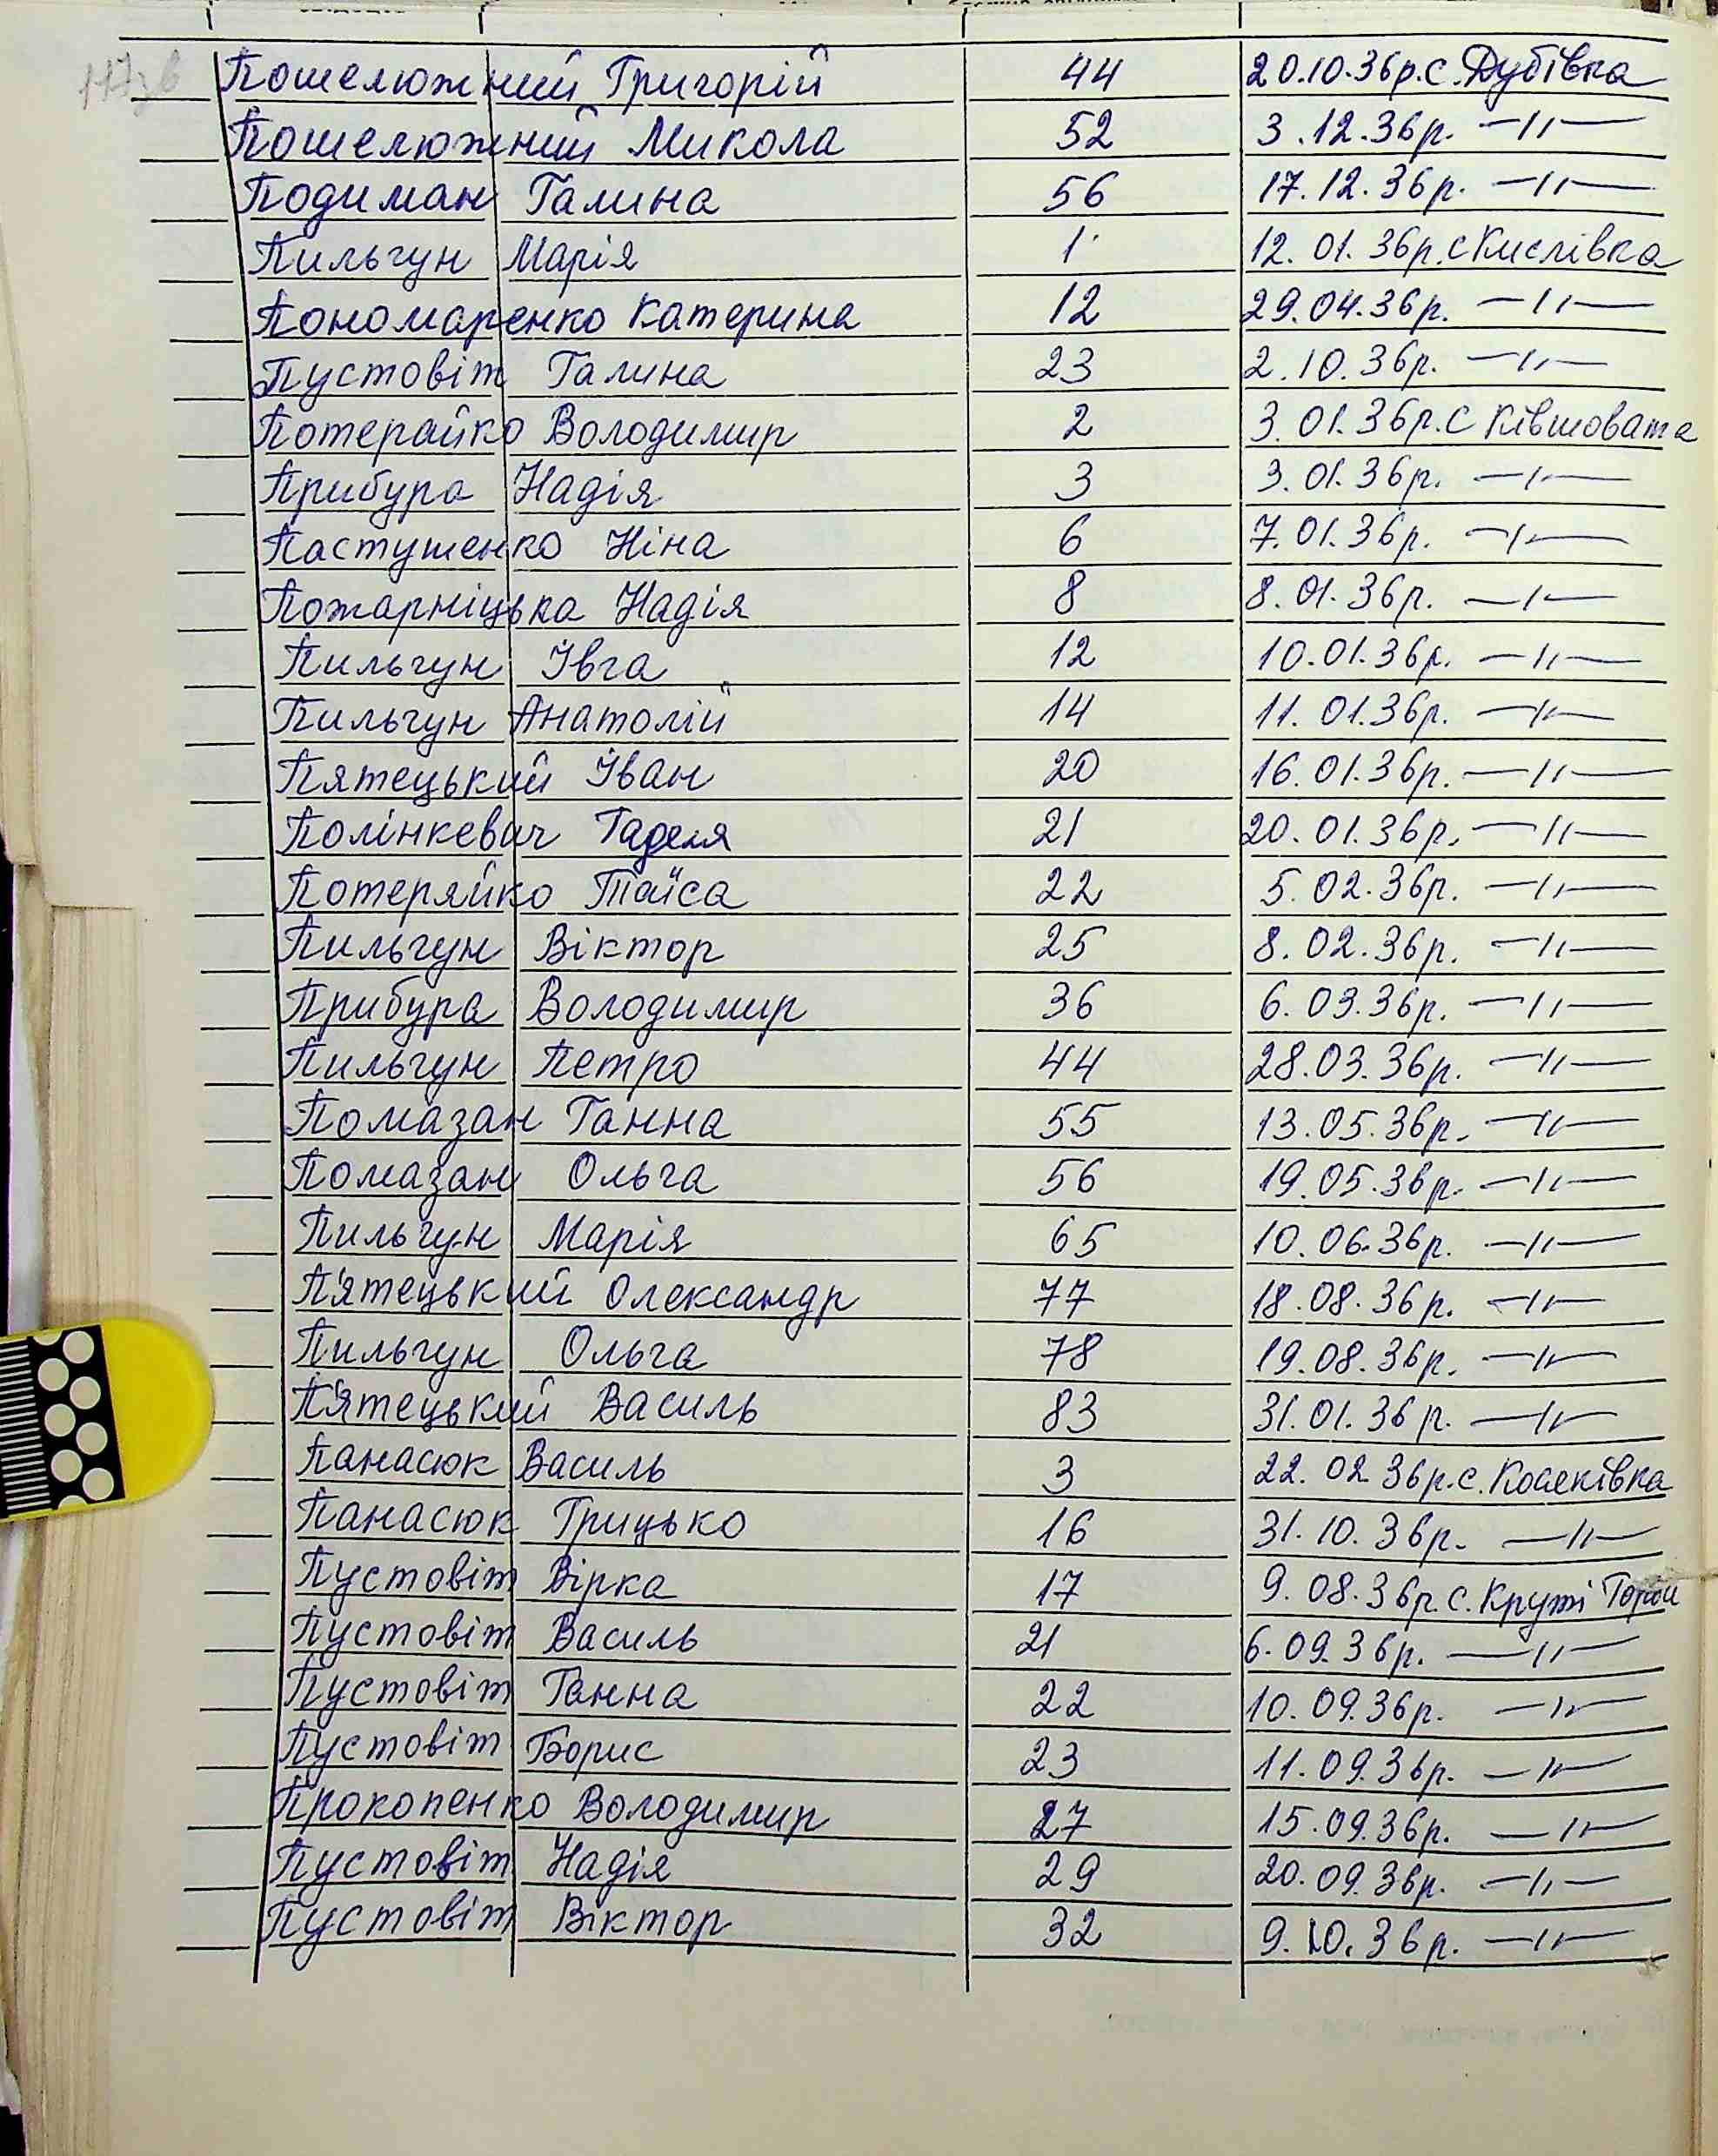 117зв
Пошелюжний Григорій 44 20.10.36р.с.Дубівка
Пошелюжний Микола 52 3.12.36р. —〃—
Подиман Галина 56 17.12.36р. —〃—
Пильгун Марія 1 12.01.36р.с Кислівка
Пономаренко Катерина 12 29.04.36р. —〃—
Пустовіт Галина 23 2.10.36р. —〃—
Потерайко Володимир 2 3.01.36р.с Ківшовата
Прибура Надія 3 3.01.36р. —〃—
Пастушенко Ніна 6 7.01.36р. —〃—
Пожарніцька Надія 8 8.01.36р. —〃—
Пильгун Івга 12 10.01.36р. —〃—
Пильгун Анатолій 14 11.01.36р. —〃—
Пятецький Іван 20 16.01.36р. —〃—
Полінкевич 21 20.01.36р. —〃—
Потеряйко Таїса 22 5.02.36р. —〃—
Пильгун Віктор 25 8.02.36р. —〃—
Прибура Володимир 36 6.03.36р. —〃—
Пильгун Петро 44 28.03.36р. —〃—
Помазан Ганна 55 13.05.36р. —〃—
Помазан Ольга 56 19.05.36р. —〃—
Пильгун Марія 65 10.06.36р. —〃—
П'ятецький Олександр 77 18.08.36р. —〃—
Пильгун Ольга 78 19.08.36р. —〃—
П'ятецький Василь 83 31.01.36р. —〃—
Панасюк Василь 3 22.02.36р.с.Косяківка
Панасюк Грицько 16 31.10.36р. —〃—
Пустовіт Вірка 17 9.08.36р.с.Круті Горби
Пустовіт Василь 21 6.09.36р. —〃—
Пустовіт Ганна 22 10.09.36р. —〃—
Пустовіт Борис 23 11.09.36р. —〃—
Прокопенко Володимир 27 15.09.36р. —〃—
Пустовіт Надія 29 20.09.36р. —〃—
Пустовіт Віктор 32 9.10.36р. —〃—